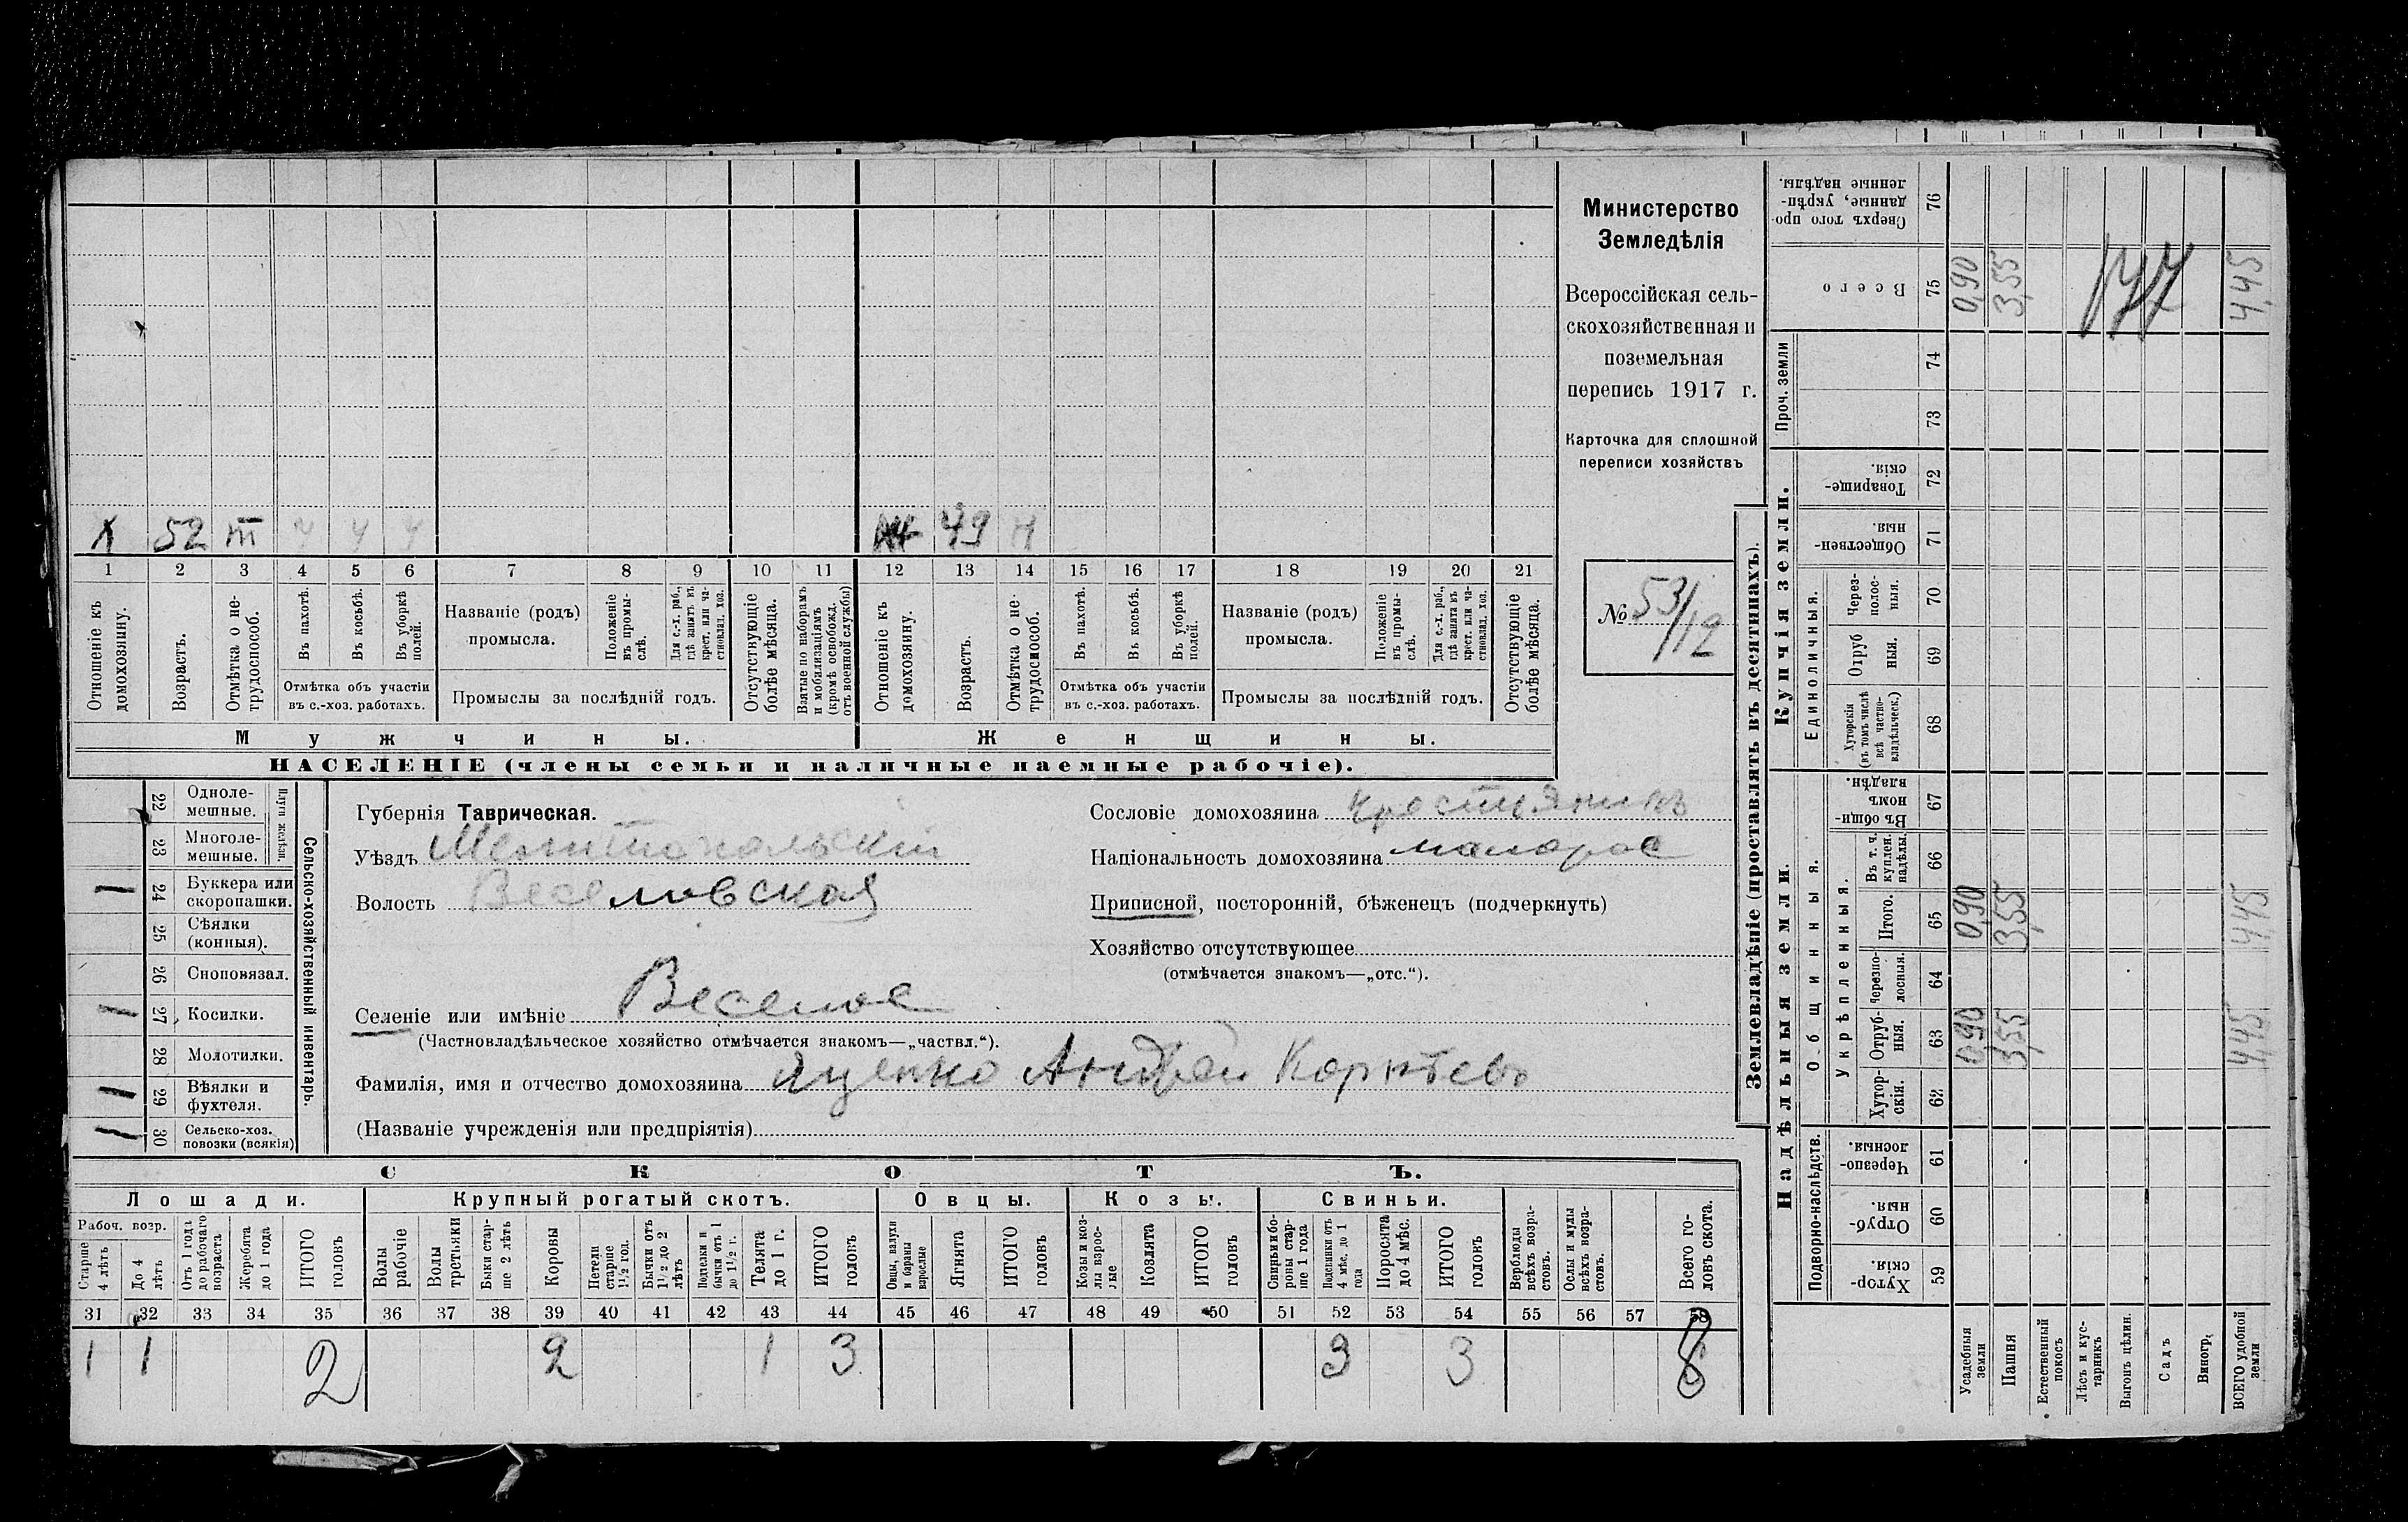 Министерство
Земледѣлія
Всероссійская сель-
скохозяйственная и
поземельная
перепись 1917 г.
Карточка для сплошной
переписи хозяйствъ
№ 53/12
Х 52 m ч ч ч 49 н
1 2 3 4 5 6 7 8 9 10 11 12 13 14 15 16 17 18 19 20 21
Отношеніе къ домохозяину.
Возрастъ.
Отмѣтка о не-трудоспособ.
Въ пахотѣ.
Въ косьбѣ.
Въ уборкѣ полей.
Отмѣтка объ участіи
въ с.-хоз. работахъ.
Названіе (родъ)
промысла.
Положеніе въ промы-слѣ.
Для с.-х. раб., гдѣ занятъ въ крест. или ча-стновлад. хоз.
Промыслы за послѣдній годъ.
Отсутствующіе болѣе мѣсяца.
Взятые по наборамъ и мобилизаціямъ (кромѣ освобожд. отъ военной службы)
Отношеніе къ домохозяину.
Возрастъ.
Отмѣтка о не-трудоспособ.
Въ пахотѣ.
Въ косьбѣ.
Въ уборкѣ полей.
Отмѣтка объ участіи
въ с.-хоз. работахъ.
Названіе (родъ)
промысла.
Положеніе въ промы-слѣ.
Для с.-х. раб., гдѣ занята въ крест. или ча-стновлад. хоз.
Промыслы за послѣдній годъ.
Отсутствующіе болѣе мѣсяца.
Мужчины.
Женщины.
НАСЕЛЕНІЕ (члены семьи и наличные наемные рабочіе).
Сельско-хозяйственный инвентарь.
Плуги желѣзн.
22 Одноле-мешные.
23 Многоле-мешные.
1 24 Буккера или скоропашки.
25 Сѣялки (конныя).
26 Сноповязал.
1 27 Косилки.
28 Молотилки.
1 29 Вѣялки и фухтеля.
1 30 Сельско-хоз. повозки (всякія)
Губернія Таврическая.
Уѣздъ Мелитопольскій
Волость Веселовская
Селеніе или имѣніе Веселое
(Частновладѣльческое хозяйство отмѣчается знакомъ—„частвл.“).
Фамилія, имя и отчество домохозяина Яценко Андрей Корнѣевъ
(Названіе учрежденія или предпріятія)
Сословіе домохозяина Крестьянинъ
Національность домохозяина малорос
Приписной, посторонній, бѣженецъ (подчеркнуть)
Хозяйство отсутствующее
(отмѣчается знакомъ—„отс.“).
СКОТЪ.
Лошади.
Крупный рогатый скотъ.
Овцы.
Козы.
Свиньи.
Рабоч. возр.
Старше 4 лѣтъ
До 4 лѣтъ
Отъ 1 года до рабочаго возраста
Жеребята до 1 года
ИТОГО головъ
Волы рабочіе
Волы третьяки
Быки стар-ше 2 лѣтъ
Коровы
Нетели старше 1½ год.
Бычки отъ 1½ до 2 лѣтъ
Подтелки и бычки отъ 1 до 1½ г.
Телята до 1 г.
ИТОГО головъ
Овцы, валухи и бараны взрослые
Ягнята
ИТОГО головъ
Козы и коз-лы взрос-лые
Козлята
ИТОГО головъ
Свиньи и бо-ровы стар-ше 1 года
Подсвинки отъ 4 мѣс. до 1 года
Поросята до 4 мѣс.
ИТОГО головъ
Верблюды всѣхъ возра-стовъ.
Ослы и мулы всѣхъ возра-стовъ.
Всего го-ловъ скота.
31 32 33 34 35 36 37 38 39 40 41 42 43 44 45 46 47 48 49 50 51 52 53 54 55 56 57 58
1 1 2 2 1 3 3 3 8
Землевладѣніе (проставлять въ десятинахъ).
Надѣльныя земли.
Купчія земли.
Проч. земли
Подворно-наслѣдств.
Общинныя.
Укрѣпленныя.
Единоличныя.
Сверхъ того про-данные, укрѣп-ленные надѣлы. 76
Всего 75 0,90 3,55 4,45
74
73
Товарище-скія. 72
Обществен-ныя. 71
Через-полос-ныя. 70
Отруб-ныя. 69
Хуторскія (въ томъ числѣ всѣ частно-владѣльческ.) 68
Въ общи-номъ владѣн. 67
Въ т. ч. куплен. надѣлы. 66
Итого. 65 0,90 3,55 4,45
Черезпо-лосныя. 64
Отруб-ныя. 63 0,90 3,55 4,45
Хутор-скія. 62
Черезпо-лосныя. 61
Отруб-ныя. 60
Хутор-скія. 59
Усадебныя земли
Пашня
Естественный покосъ
Лѣсъ и кус-тарникъ
Выгонъ цѣлин.
Садъ
Виногр.
ВСЕГО удобной земли